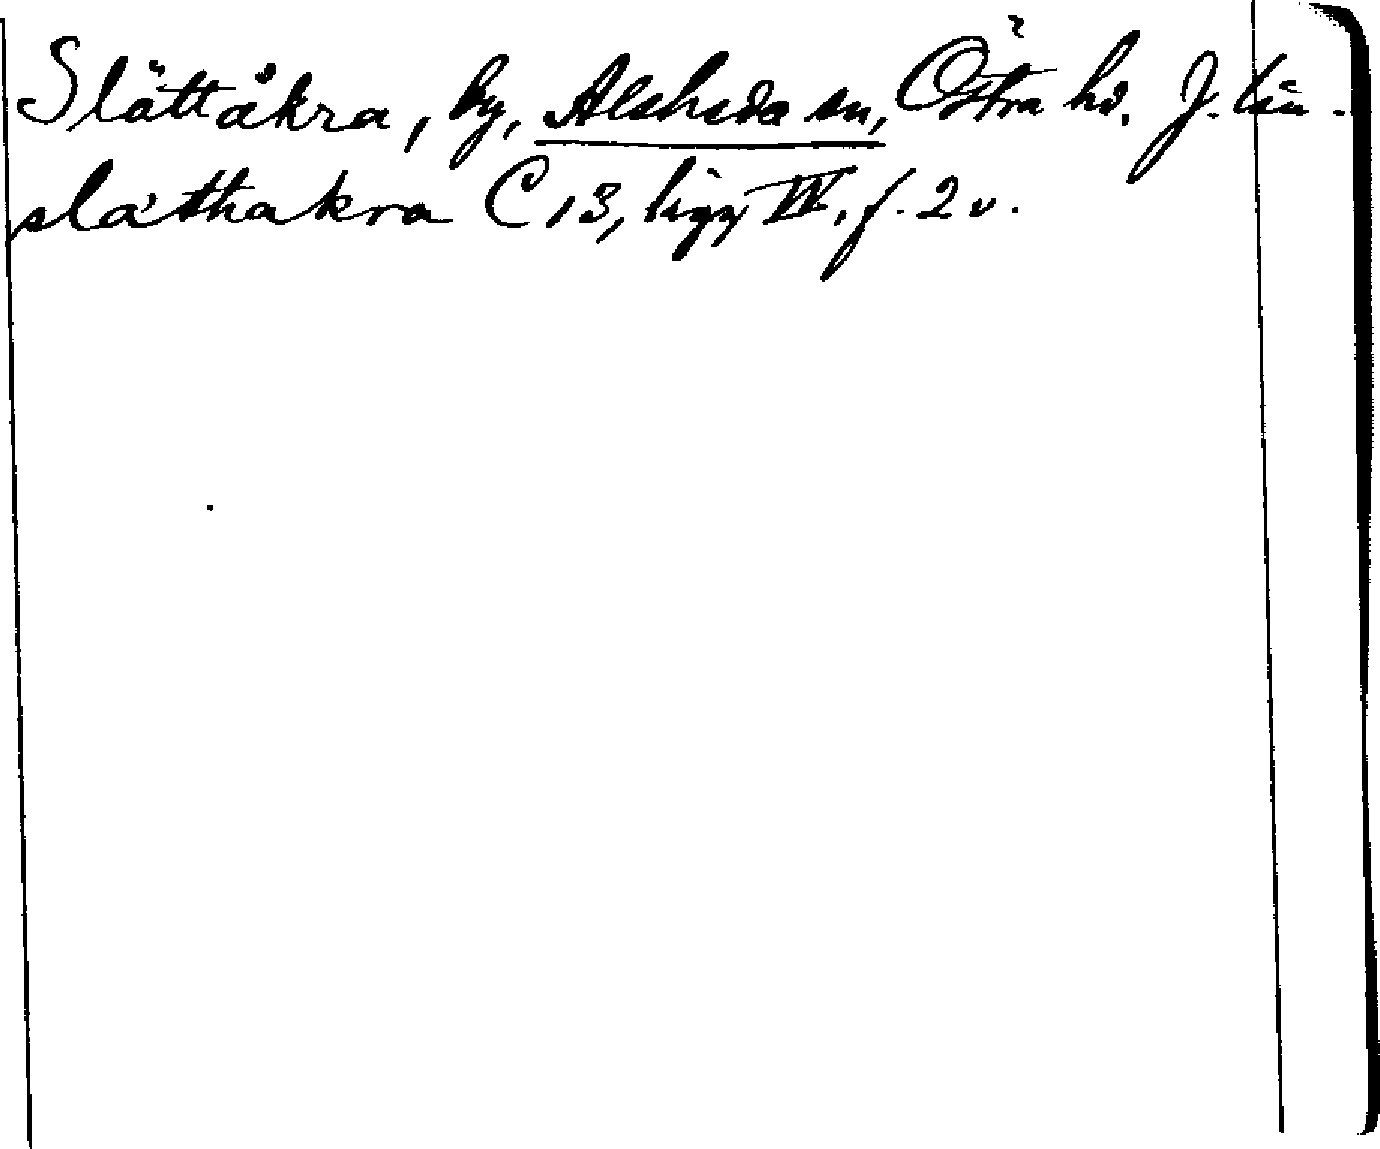 Slättåkra, by, Alsheda sn, Östra hd. J. län.
slathakra C 13, ligg IV, f. 2 v.